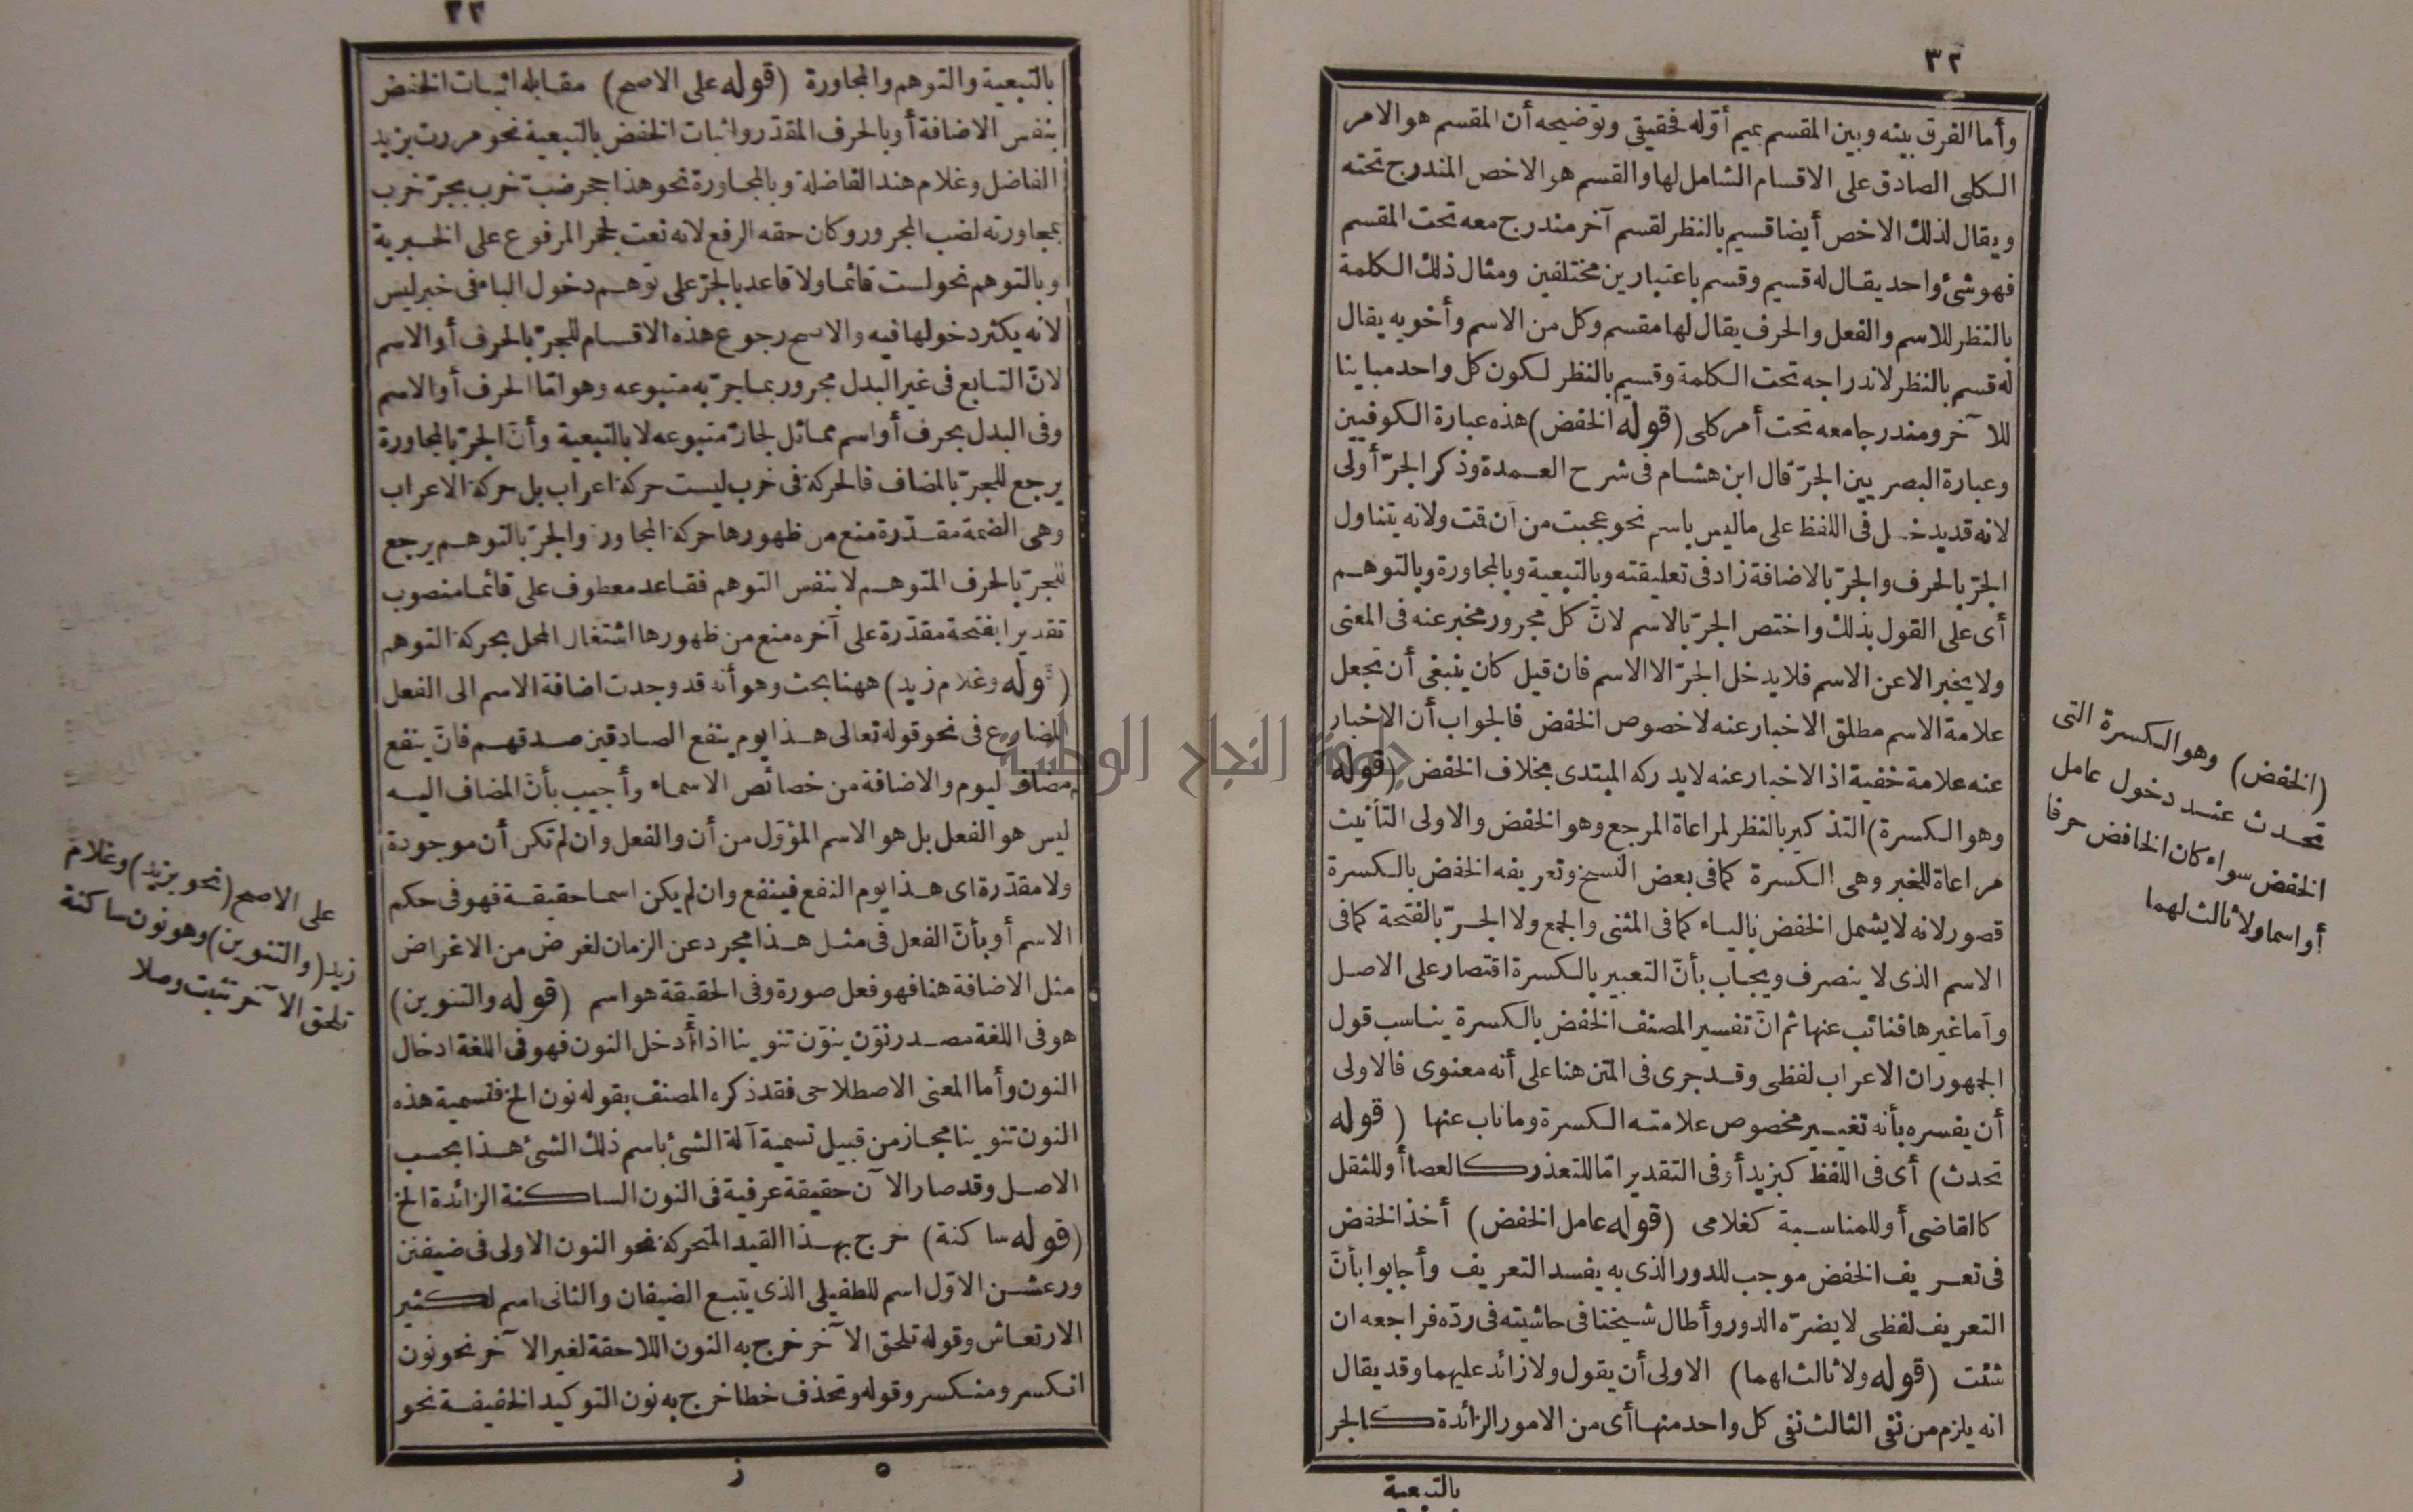 ٣٢
وأما الفرق بينه وبين المقسم بميم أوّله فحقيقي وتوضيحه أن المقسم هو الامر
الكلى الصادق على الاقسام الشامل لها والقسم هو الاخص المندرج تحته
ويقال لذلك الاخص أيضا قسيم بالنظر لقسم آخر مندرج معه تحت المقسم
فهو شئ واحد يقال له قسيم وقسم باعتبارين مختلفين ومثال ذلك الكلمة
بالنظر للاسم والفعل والحرف يقال لها مقسم وكل من الاسم وأخويه يقال
له قسم بالنظر لاندراجه تحت الكلمة وقسيم بالنظر لكون كل واحد مباينا
للآخر ومندرجا معه تحت أمر كلى (قوله الخفض) هذه عبارة الكوفيين
وعبارة البصريين الجرّ قال ابن هشام فى شرح العمدة وذكر الجرّ أولى
لانه قد يدخل فى اللفظ على ما ليس باسم نحو عجبت من أن قت ولانه يتناول
الجرّ بالحرف والجرّ بالاضافة زاد فى تعليقته وبالتبعية وبالمجاورة وبالتوهم
أى على القول بذلك واختص الجرّ بالاسم لانّ كل مجرور مخبر عنه فى المعنى
ولا يخبر الا عن الاسم فلا يدخل الجرّ الا الاسم فان قيل كان ينبغى أن تجعل
علامة الاسم مطلق الاخبار عنه لا خصوص الخفض فالجواب أن الاخبار
عنه علامة خفية اذ الاخبار عنه لا يدركه المبتدى بخلاف الخفض (قوله
وهو الكسرة) التذكير بالنظر لمراعاة المرجع وهو الخفض والاولى التأنيث
مراعاة للخبر وهى الكسرة كما فى بعض النسخ وتعريفه الخفض بالكسرة
قصور لانه لا يشمل الخفض بالياء كما فى المثنى والجمع ولا الجرّ بالفتحة كما فى
الاسم الذى لا ينصرف ويجاب بأنّ التعبير بالكسرة اقتصار على الاصل
وأما غيرها فنائب عنها ثم انّ تفسير المصنف الخفض بالكسرة يناسب قول
الجمهور ان الاعراب لفظى وقد جرى فى المتن هنا على أنه معنوى فالاولى
أن يفسره بأنه تغيير مخصوص علامته الكسرة وما ناب عنها (قوله
تحدث) أى فى اللفظ كبزيد أو فى التقدير امّا للتعذر كالعصا أو للثقل
كالقاضى أو للمناسبة كغلامى (قوله عامل الخفض) أخذ الخفض
فى تعريف الخفض موجب للدور الذى به يفسد التعريف وأجابوا بأنّ
التعريف لفظى لا يضرّه الدور وأطال شيخنا فى حاشيته فى ردّه فراجعه ان
شئت (قوله ولا ثالث لهما) الاولى أن يقول ولا زائد عليهما وقد يقال
انه يلزم من نفى الثالث نفى كل واحد منها أى من الامور الزائدة كالجر
بالتبعية
(الخفض) وهو الكسرة التى
تحدث عند دخول عامل
الخفض سواء كان الخافض حرفا
أو اسما ولا ثالث لهما
جامعة النجاح الوطنية
٣٣
بالتبعية والتوهم والمجاورة (قوله على الاصح) مقابله اثبات الخفض
بنفس الاضافة أو بالحرف المقدّر واثبات الخفض بالتبعية نحو مررت بزيد
الفاضل وغلام هند الفاضلة وبالمجاورة نحو هذا جحر ضبّ خرب بجرّ خرب
بمجاورته لضب المجرور وكان حقه الرفع لانه نعت لجحر المرفوع على الخبرية
وبالتوهم نحو لست قائما ولا قاعد بالجرّ على توهم دخول الباء فى خبر ليس
لانه يكثر دخولها فيه والاصح رجوع هذه الاقسام للجرّ بالحرف أو الاسم
لانّ التابع فى غير البدل مجرور بما جرّ به متبوعه وهو امّا الحرف أو الاسم
وفى البدل بحرف أو اسم مماثل لجارّ متبوعه لا بالتبعية وأنّ الجرّ بالمجاورة
يرجع للجرّ بالمضاف فالحركة فى خرب ليست حركة اعراب بل حركة الاعراب
وهى الضمة مقدّرة منع من ظهورها حركة المجاورة والجرّ بالتوهم يرجع
للجرّ بالحرف المتوهم لا بنفس التوهم فقاعد معطوف على قائما منصوب
تقديرا بفتحة مقدّرة على آخره منع من ظهورها اشتغال المحل بحركة التوهم
(قوله وغلام زيد) ههنا بحث وهو أنه قد وجدت اضافة الاسم الى الفعل
المضارع فى نحو قوله تعالى هذا يوم ينفع الصادقين صدقهم فانّ ينفع
مضاف ليوم والاضافة من خصائص الاسماء وأجيب بأنّ المضاف اليه
ليس هو الفعل بل هو الاسم المؤوّل من أن والفعل وان لم تكن أن موجودة
ولا مقدّرة اى هذا يوم النفع فينفع وان لم يكن اسما حقيقة فهو فى حكم
الاسم أو بأنّ الفعل فى مثل هذا مجرد عن الزمان لغرض من الاغراض
مثل الاضافة هنا فهو فعل صورة وفى الحقيقة هو اسم (قوله والتنوين)
هو فى اللغة مصدر نوّن ينوّن تنوينا اذا أدخل النون فهو فى اللغة ادخال
النون وأما المعنى الاصطلاحى فقد ذكره المصنف بقوله نون الخ فتسمية هذه
النون تنوينا مجاز من قبيل تسمية آلة الشئ باسم ذلك الشئ هذا بحسب
الاصل وقد صار الآن حقيقة عرفية فى النون الساكنة الزائدة الخ
(قوله ساكنة) خرج بهذا القيد المتحركة نحو النون الاولى فى ضيفنن
ورعشن الاوّل اسم للطفيلى الذى يتبع الضيفان والثانى اسم لكثير
الارتعاش وقوله تلحق الآخر خرج به النون اللاحقة لغير الآخر نحو نون
انكسر ومنكسر وقوله وتحذف خطا خرج به نون التوكيد الخفيفة نحو
٥ ز
على الاصح (نحو بزيد) وغلام
زيد (والتنوين) وهو نون ساكنة
تلحق الآخر تثبت وصلا